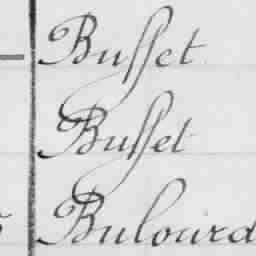 Busset
Busset
Bulourd